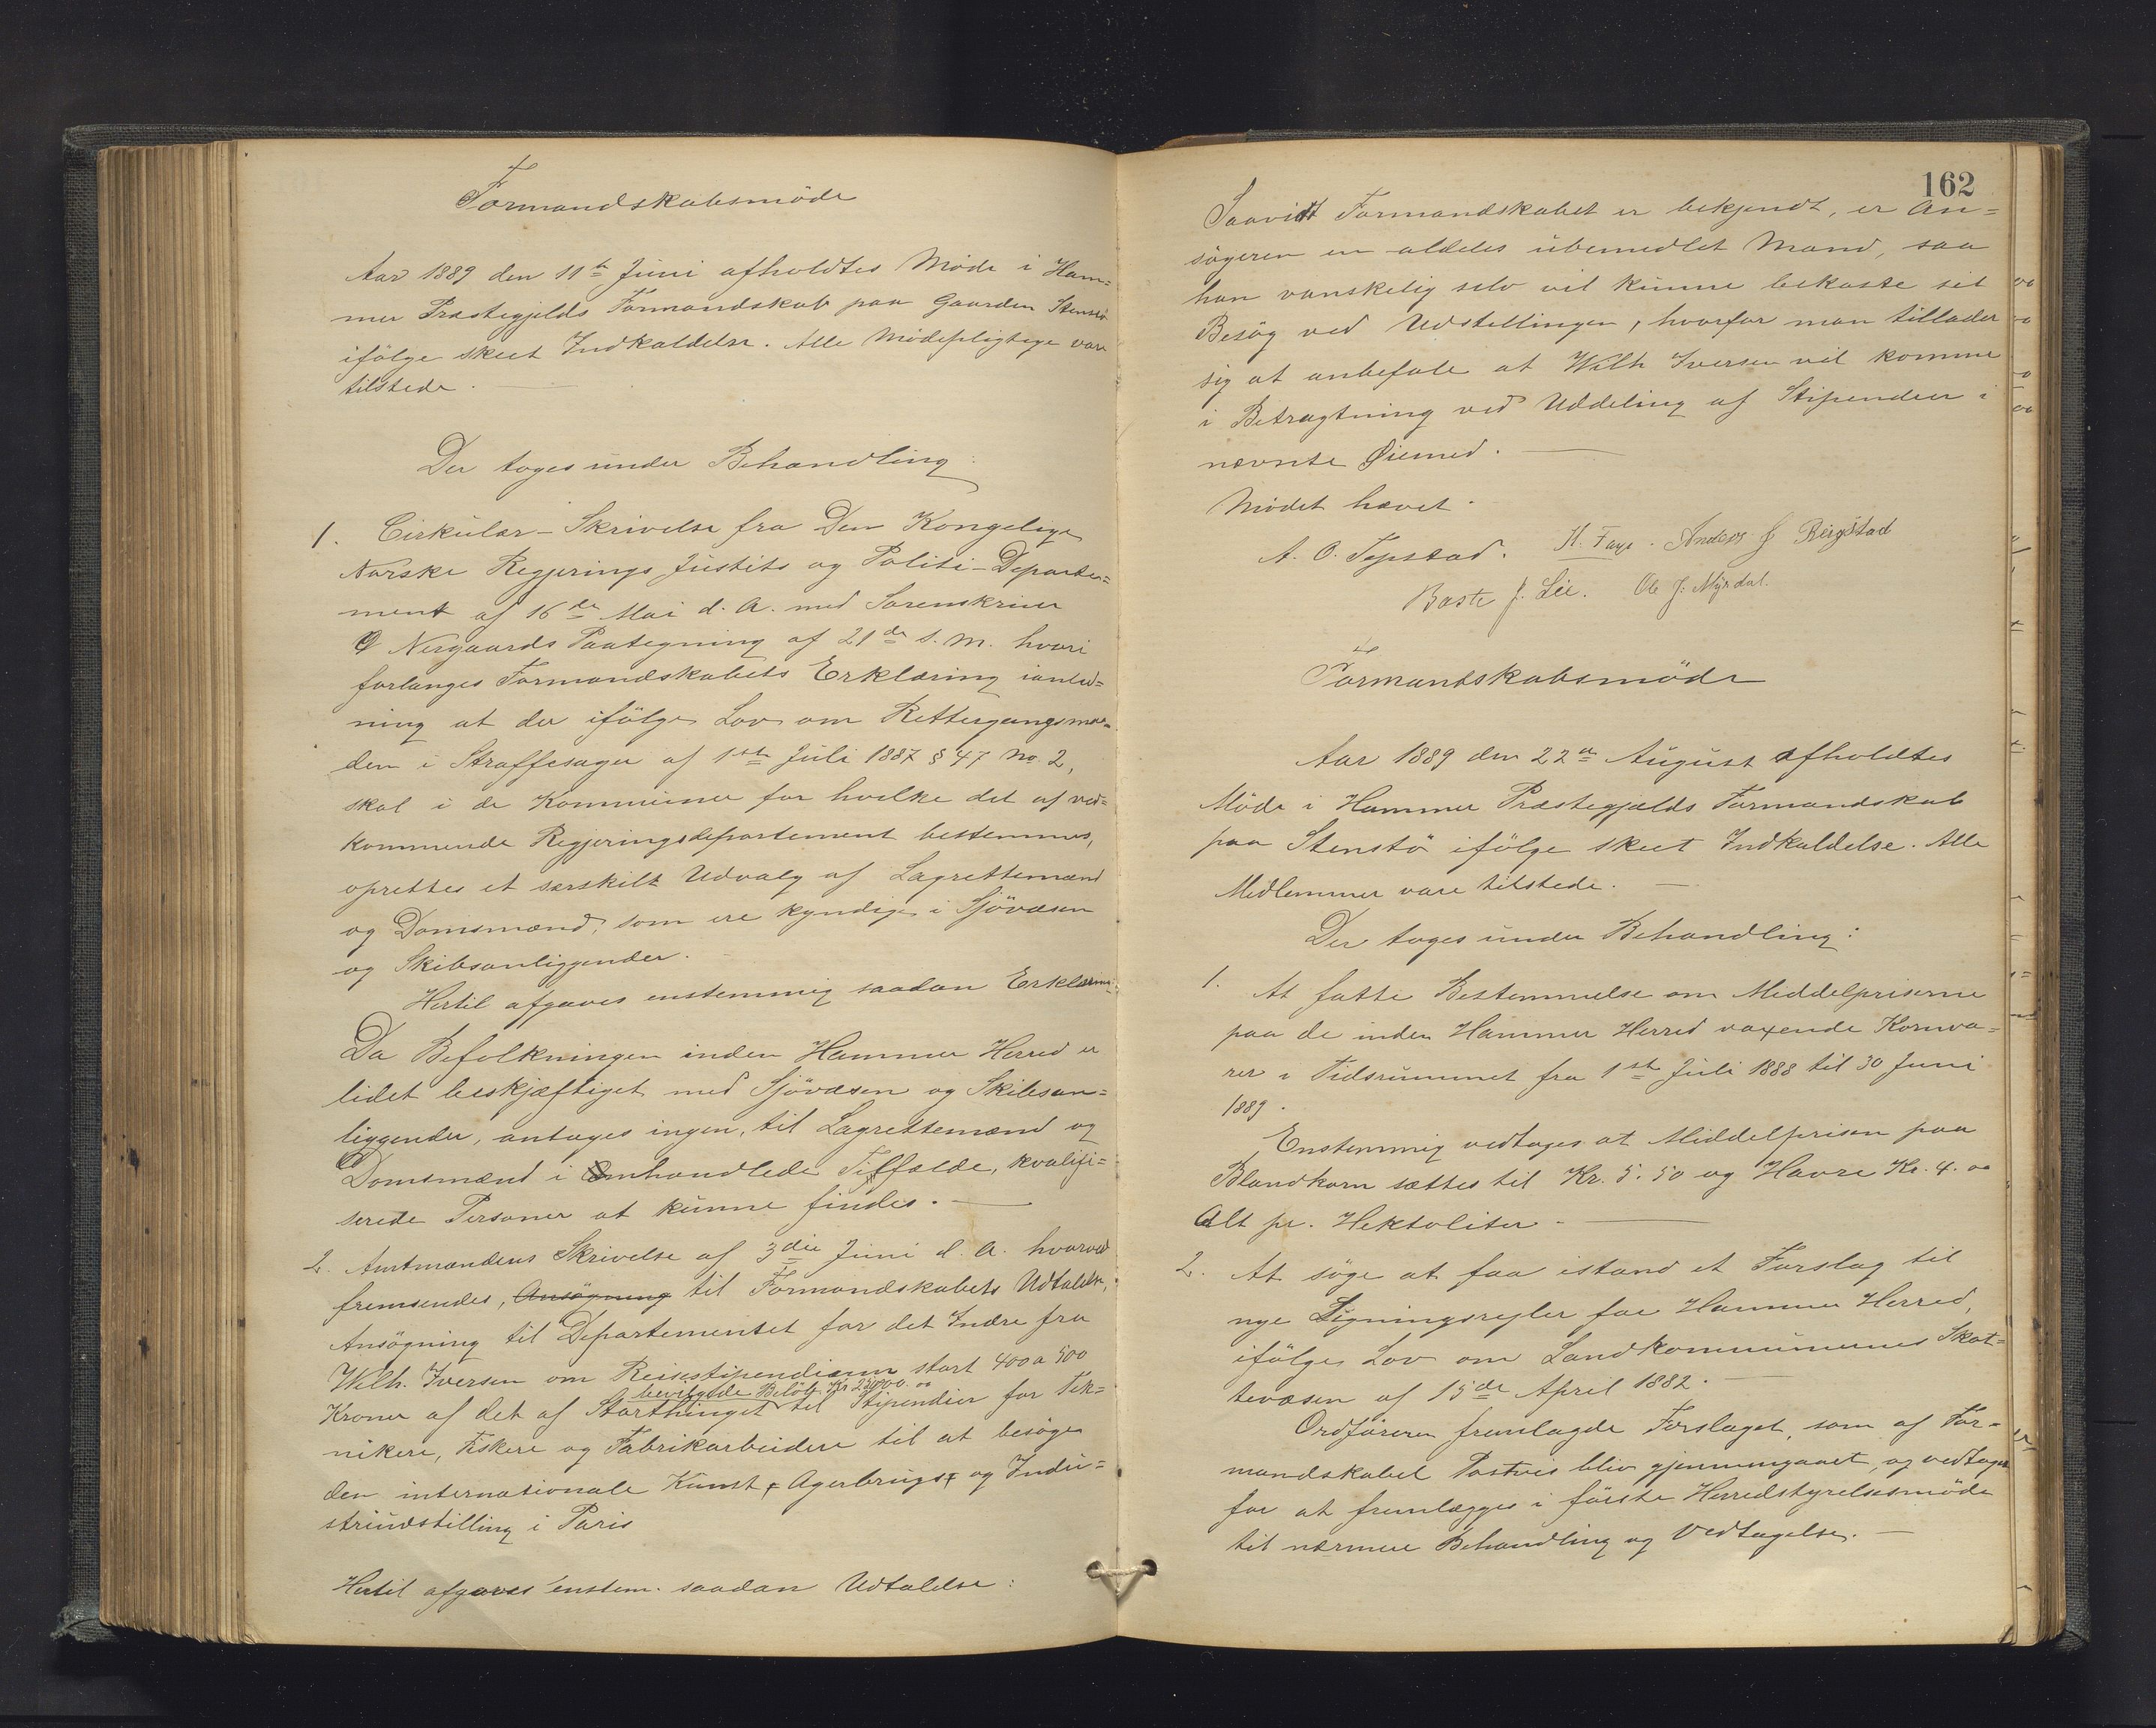 Formandskabsmöde
Aar 1889 den 11te Juni afholdtes Möde i Ham=
mer Præstegjelds Formandskab paa Gaarden Stenstö
ifölge skeet Indkaldelse. Alle Mödepligtige vare
tilstede.
Der toges under Behandling:
1. Cirkulær-Skrivelse fra Den Kongelige
Norske Regjerings Justits og Politi-Departe=
ment af 16de Mai d. A. med Sorenskriver
Nergaards Paategning af 21de s. M. hvori
forlanges Formandskabets Erklæring ianled=
ning at der ifölge Lov om Rettergangsmaa=
den i Straffesager af 1ste Juli 1887 § 47 No. 2,
skal i de Kommuner for hvilke det af ved=
kommende Regjeringsdepartement bestemmes,
oprettes et særskilt Udvalg af Lagrettemænd
og Domsmænd, som ere kyndige i Sjövæsen
og Skibsanliggender.
Hertil afgaves enstemmig saadan Erklæring:
Da Befolkningen inden Hammer Herred er
lidet beskjæftiget med Sjövæsen og Skibsan=
liggender, antages ingen, til Lagrettemænd og
Domsmænd i omhandlede Tilfælde, kvalifi=
serede Personer at kunne findes.
2. Amtmandens Skrivelse af 3die Juni d. A. hvorved
fremsendes, Ansögning til Formandskabets Udtalelse,
Ansögning til Departementet for det Indre fra
Wilh. Iversen om Reisestipendium stort 400 a 500
bevilgede Belöb Kr 22000.00
Kroner af det af Storthinget til Stipendier for Tek=
nikere, Fiskere og Fabrikarbeidere til at besöge
den internationale Kunst, Agerbrugs, og Indu=
striudstilling i Paris
Hertil afgaves enstem. saadan Udtalelse:
162
Saavidt Formandskabet er bekjendt, er An=
sögeren en aldeles ubemedlet Mand, saa
han vanskelig selv vil kunne bekoste sit
Besög ved Udstillingen, hvorfor man tillader
sig at anbefale at Wilh Iversen vil komme
i Betragtning ved Uddeling af Stipendier i
nævnte Øiemed.
Mödet hævet.
A. O. Tepstad. H. Faye. Anders J Reigstad
Baste J. Lie. Ole J. Myrdal.
Formandskabsmöde
Aar 1889 den 22de August afholdtes
Möde i Hammer Præstegjælds Formandskab
paa Stenstö ifölge skeet Indkaldelse. Alle
Medlemmer vare tilstede.
Der toges under Behandling:
1. At fatte Bestemmelse om Middelpriserne
paa de inden Hammer Herred voxende Kornva=
rer i Tidsrummet fra 1ste Juli 1888 til 30 Juni
1889.
Enstemmig vedtages at Middelprisen paa
Blandkorn sættes til Kr. 5.50 og Havre Kr. 4.00
Alt pr. Hektoliter.
2. At söge at faa istand et Forslag til
nye Ligningsregler for Hammer Herred,
ifölge Lov om Landkommunernes Skat=
tevæsen af 15de April 1882.
Ordföreren fremlagde Forslaget, som af For=
mandskabet Postvis blev gjennemgaaet, og vedtaget
for at fremlægges i förste Herredstyrelsesmöde
til nærmere Behandling og Vedtagelse.